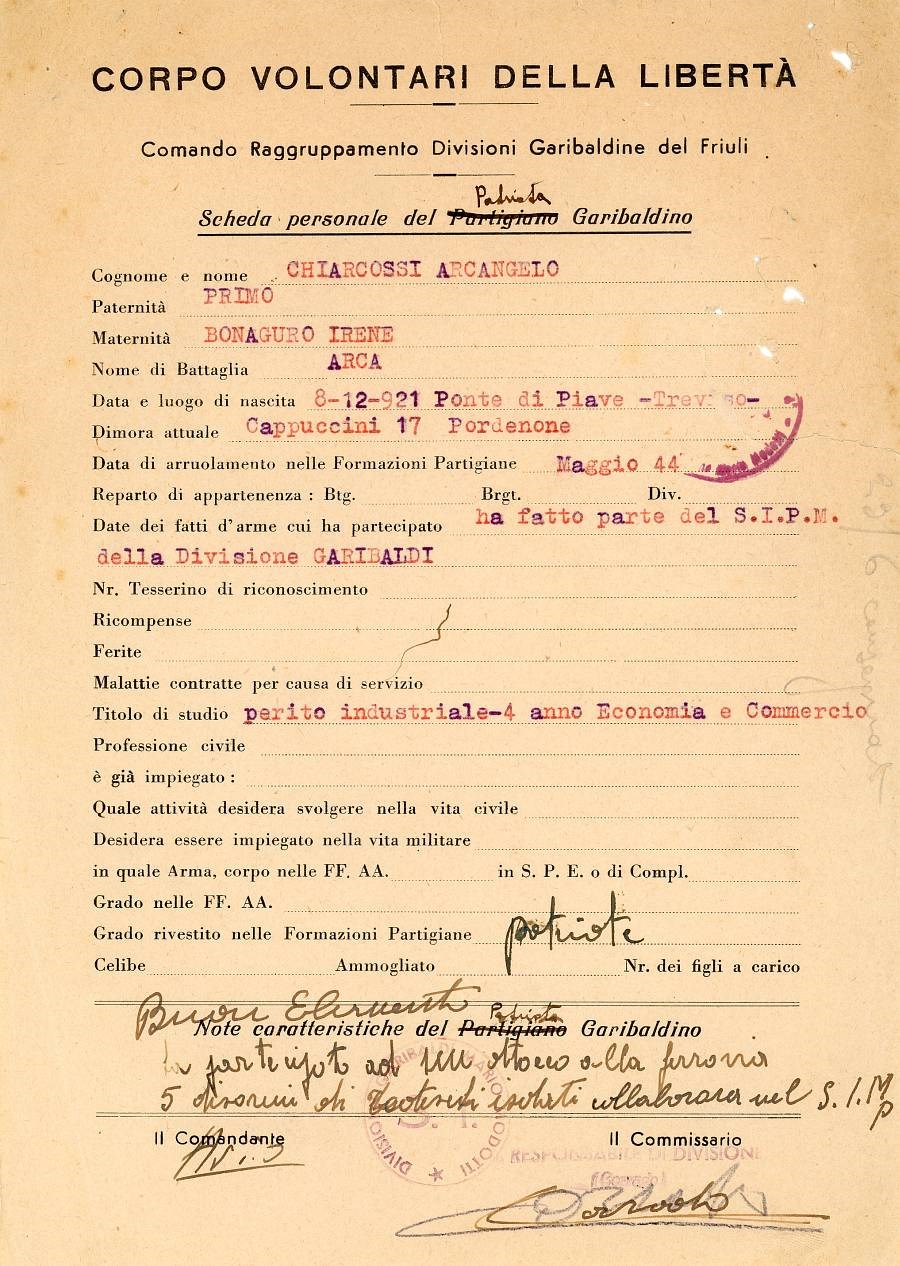 CORPO VOLONTARI DELLA LIBERTÀ
Comando Raggruppamento Divisioni Garibaldine del Friuli
Patriota
Scheda personale del Partigiano Garibaldino
Cognome e nome CHIARCOSSI ARCANGELO
Paternità PRIMO
Maternità BONAGURO IRENE
Nome di Battaglia ARCA
Data e luogo di nascita 8-12-921 Ponte di Piave -Treviso-
Dimora attuale Cappuccini 17 Pordenone
Data di arruolamento nelle Formazioni Partigiane Maggio 44
Reparto di appartenenza : Btg. Brgt. Div.
Date dei fatti d'arme cui ha partecipato ha fatto parte del S.I.P.M.
della Divisione GARIBALDI
Nr. Tesserino di riconoscimento
Ricompense
Ferite
Malattie contratte per causa di servizio
Titolo di studio perito industriale-4 anno Economia e Commercio
Professione civile
è già impiegato :
Quale attività desidera svolgere nella vita civile
Desidera essere impiegato nella vita militare
in quale Arma, corpo nelle FF. AA. in S. P. E. o di Compl.
Grado nelle FF. AA.
Grado rivestito nelle Formazioni Partigiane patriota
Celibe Ammogliato Nr. dei figli a carico
Buon Elemento
Patriota
Note caratteristiche del Partigiano Garibaldino
partecipato ad un attacco alla ferrovia
5 disarmi di Tedeschi isolati collaborava nel S.I.M.P
Il Comandante Il Commissario
RESPONSABILE DI DIVISIONE